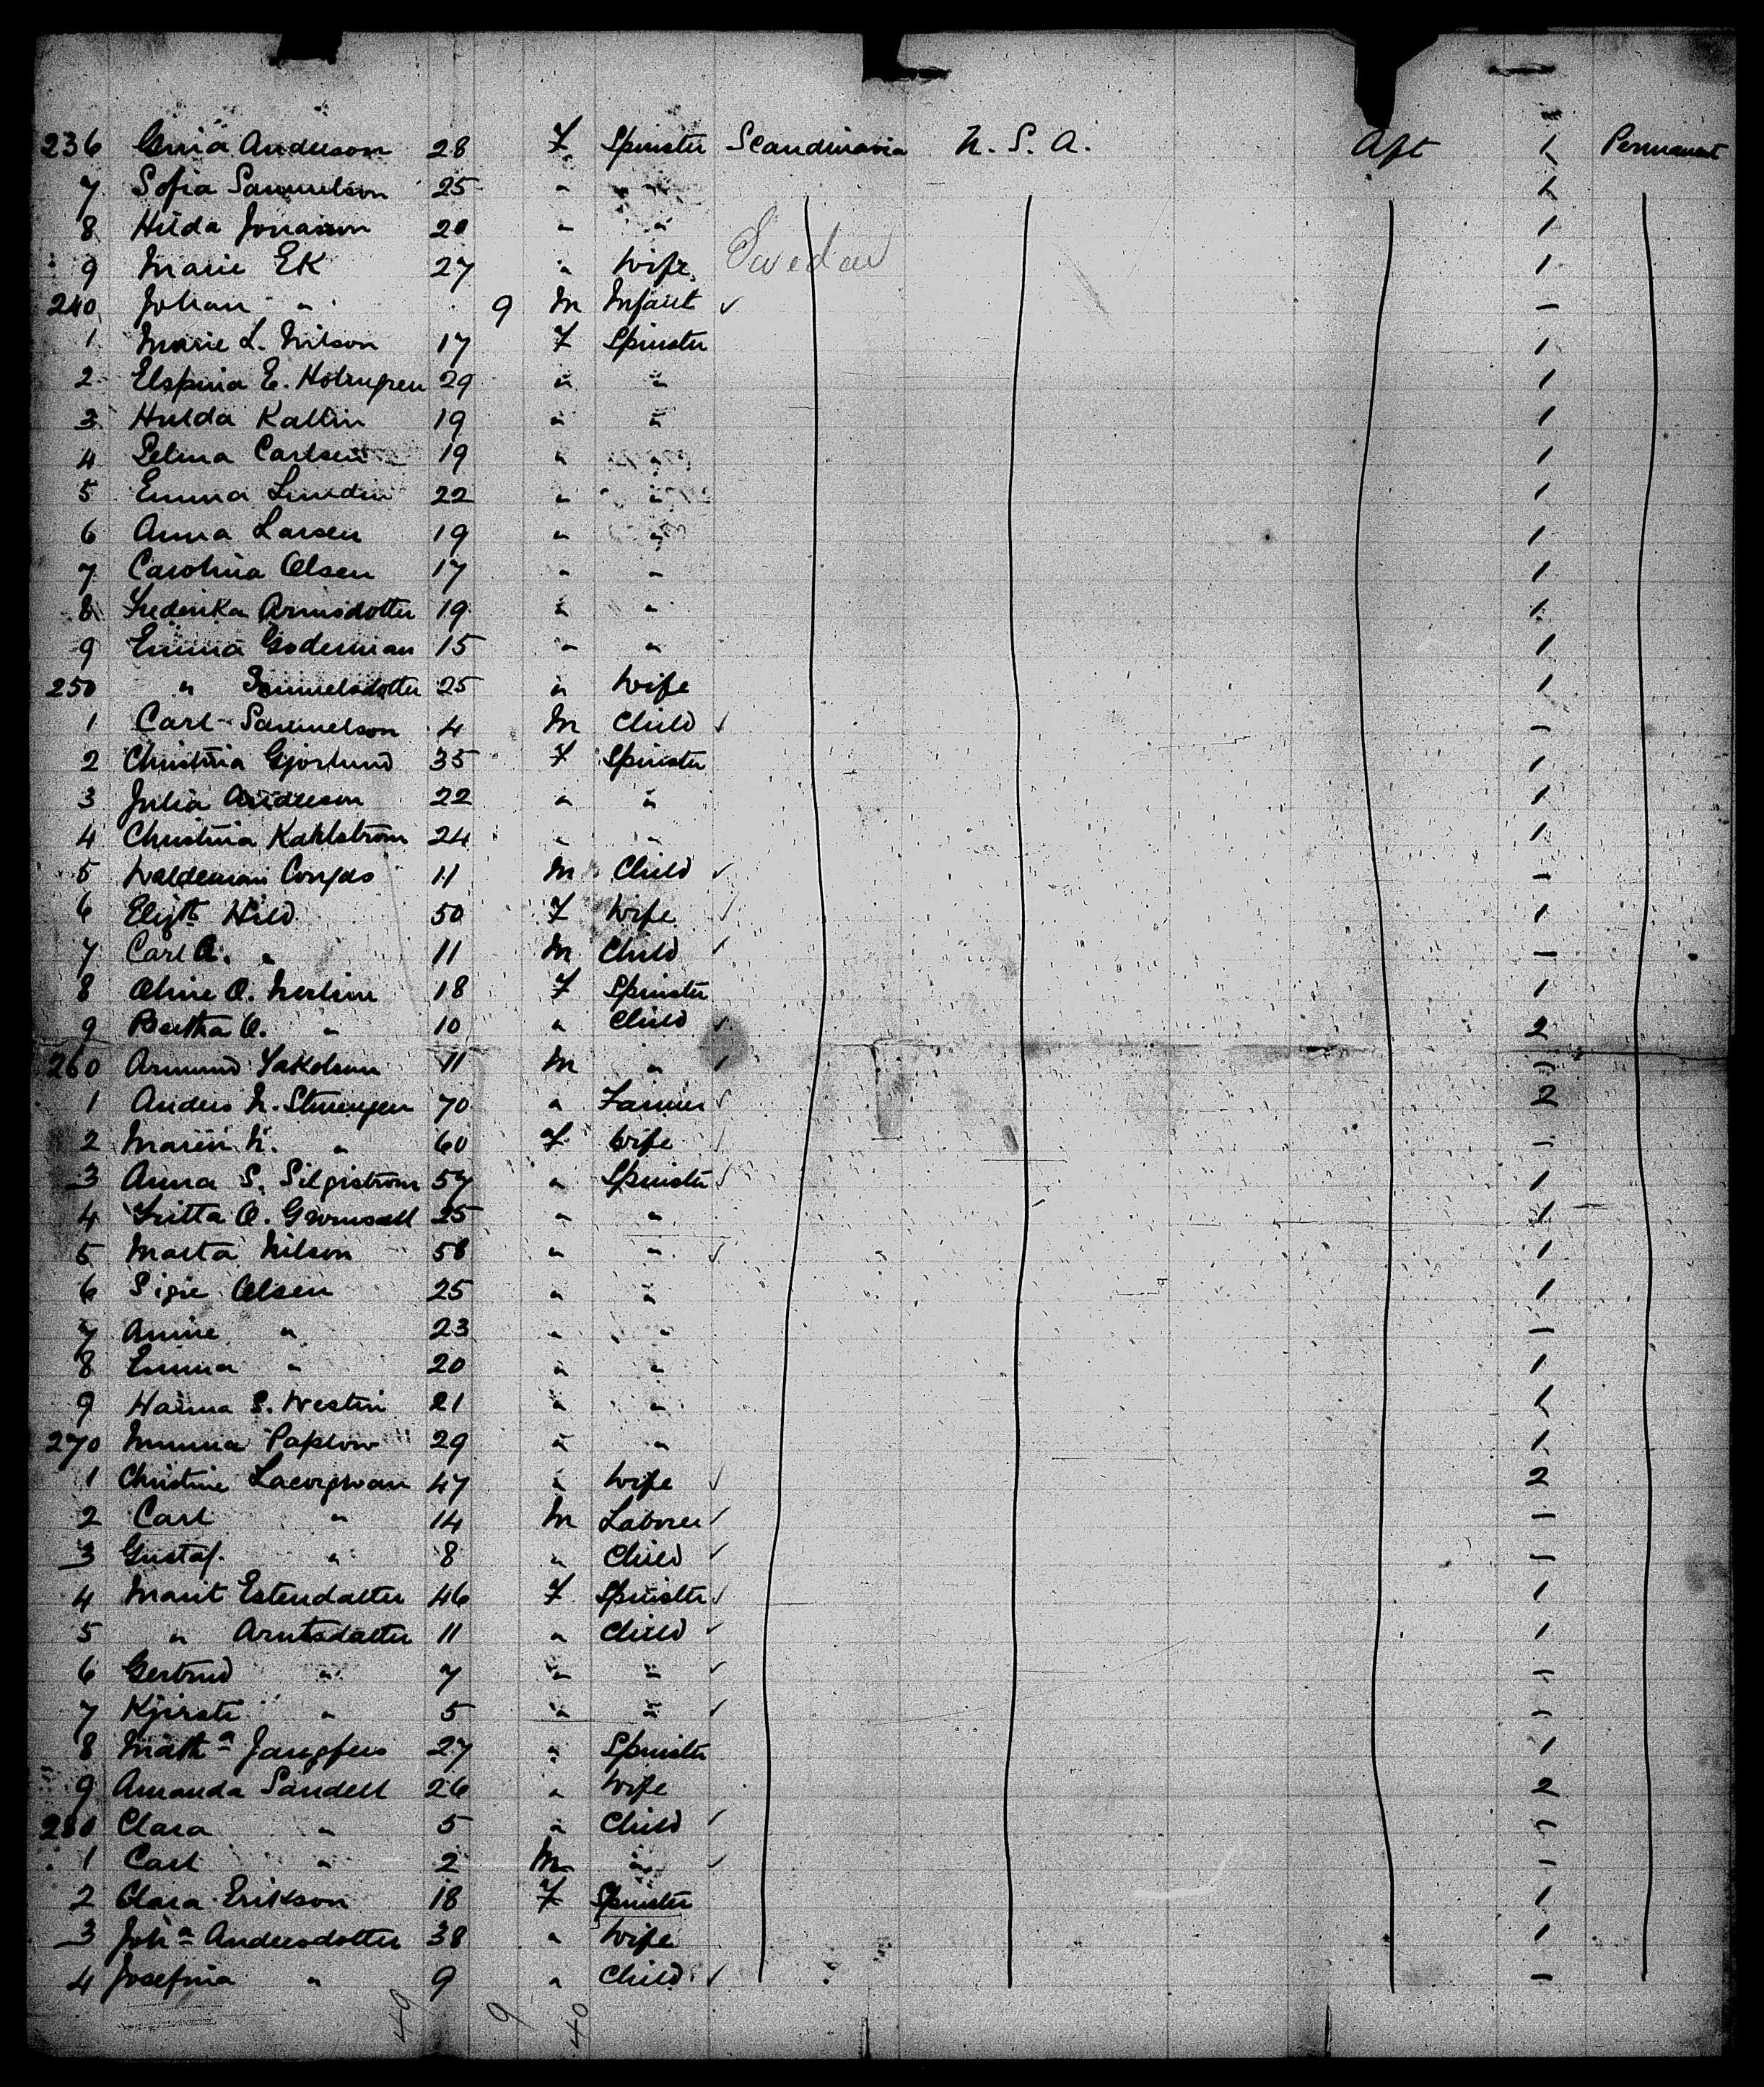 236 Anderson 28 F Spinster Scandinavia U. S. A. Aft 1 Permanent
7 Sofia Samuelson 25 " " 1
8 Hilda Jonasson 20 " " 1
9 Marie Ek 27 " Wife Sweden 1
240 Johan " 9 M Infant ✓ —
1 Marie L. Nilson 17 F Spinster 1
2 E. Holmgren 29 " " 1
3 Hulda Kallin 19 " " 1
4 Selma Carlsen 19 " " 1
5 Emma Lundin 22 " " 1
6 Anna Larsen 19 " " 1
7 Carolina Olsen 17 " " 1
8 Frederika 19 " " 1
9 Emma Goderman 15 " " 1
250 " Samuelsdotter 25 " Wife 1
1 Carl Samuelson 4 M Child ✓ —
2 Christina Gjorlund 35 F Spinster 1
3 Julia Andreson 22 " " 1
4 Christina Kahlstrom 24 " " 1
5 11 M Child ✓ —
6 Elizth Hild 50 F Wife ✓ 1
7 Carl A. " 11 M Child ✓ —
8 O. 18 F Spinster 1
9 Bertha O. " 10 " Child ✓ 2
260 11 M " ✓ —
1 Anders N. 70 " Farmer ✓ 2
2 N. " 60 F Wife ✓ —
3 Anna S. 57 " Spinster ✓ 1
4 O. 25 " " 1
5 Marta Nilson 58 " " ✓ 1
6 Olsen 25 " " 1
7 " 23 " " —
8 Emma " 20 " " 1
9 Hanna S. Westin 21 " " 1
270 29 " " 1
1 Christine 47 " Wife ✓ 2
2 Carl " 14 M Laborer ✓ —
3 Gustaf " 8 " Child ✓ —
4 Marit Estendatter 46 F Spinster ✓ 1
5 " Arntsdatter 11 " Child ✓ 1
6 Gertrud " 7 " " ✓ —
7 Kjirsti " 5 " " ✓ —
8 Matha 27 " Spinster 1
9 Amanda Sandell 26 " Wife 2
280 Clara " 5 " Child ✓ —
1 Carl " 2 M " ✓ —
2 Clara Erikson 18 F Spinster 1
3 Joha Andersdotter 38 " Wife 1
4 Josefina " 9 " Child ✓ —
49 9 40